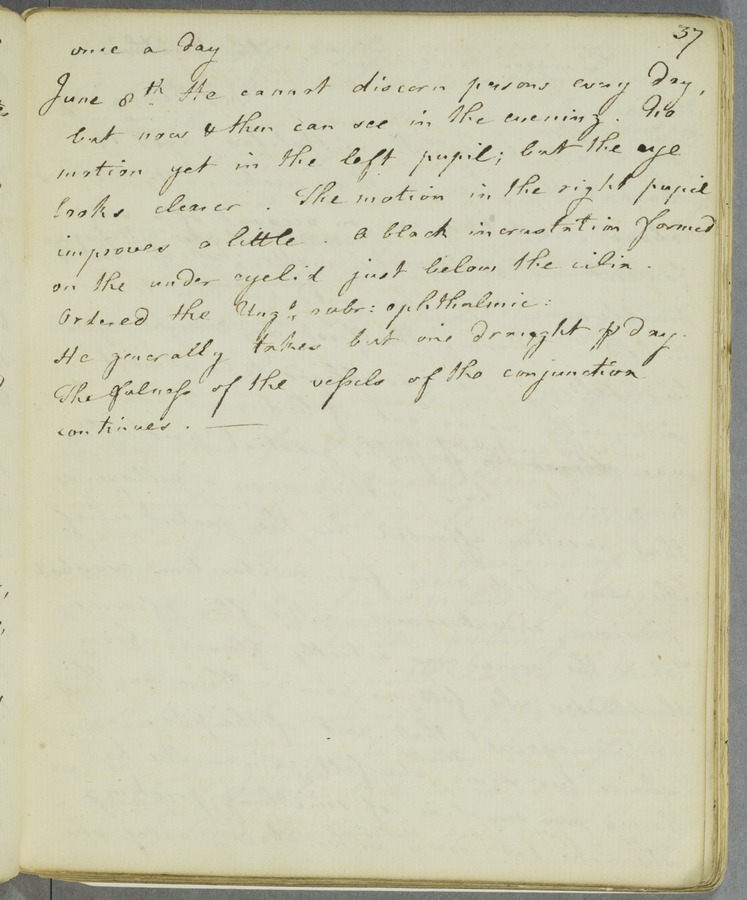 37
once a day
June 8th He cannot discern persons every day,
but now & then can see in the evening. No
motion yet in the left pupil; but the eye
looks clearer. The motion in the right pupil
improves a little. A black incrustation formed
on the under eyelid just below the cilia.
Ordered the Ungt rubr: ophthalmic:
He generally takes but one draught ⅌ day.
The fulness of the vessels of the conjunction
continues. —